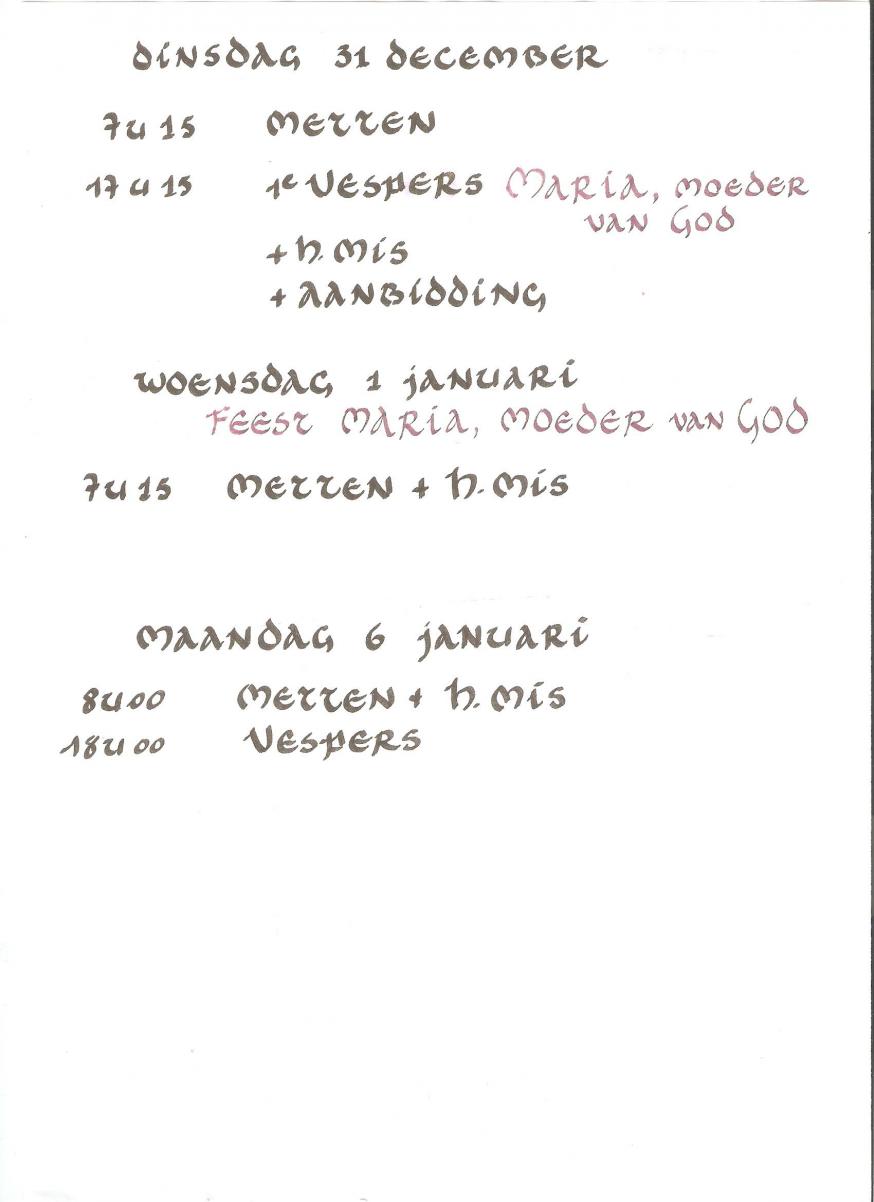 Dinsdag 31 december
7u15 Metten
17u15 1e Vespers Maria, moeder
van God
+ h. Mis
+ Aanbidding
Woensdag 1 januari
Feest Maria, moeder van God
7u15 Metten + h. Mis
Maandag 6 januari
8u00 Metten + h. Mis
18u00 Vespers